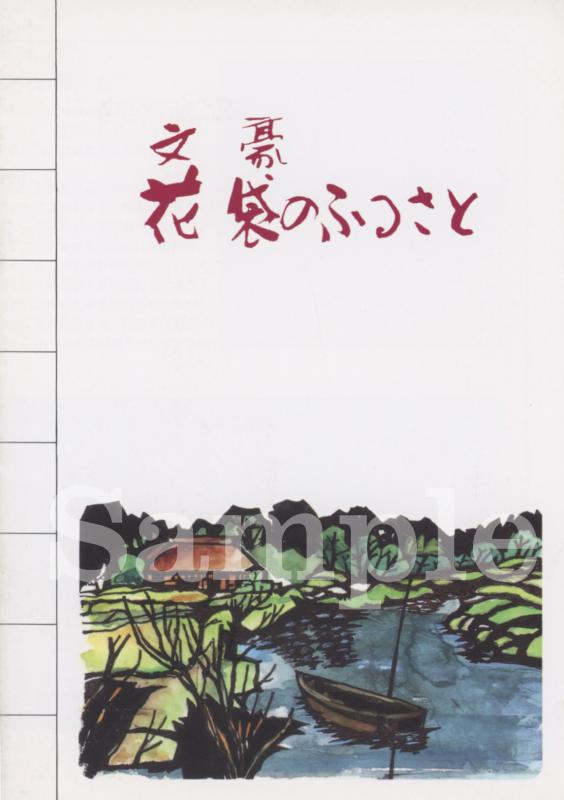 文豪
花袋のふるさと
Sample